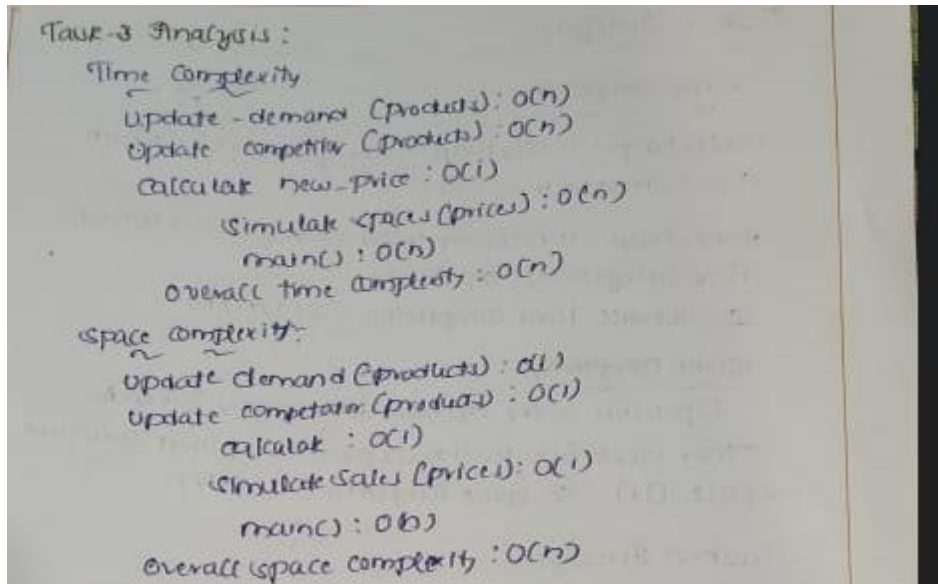 Task-3 Analysis:
Time Complexity
Update-demand (products): O(n)
Update competitor (products): O(n)
calculate new-price: O(1)
Simulate (prices): O(n)
main(): O(n)
overall time complexity: O(n)
space complexity:
update demand (products): O(1)
update competator (products): O(1)
calculate: O(1)
simulate sales (prices): O(1)
main(): O(n)
overall space complexity: O(n)